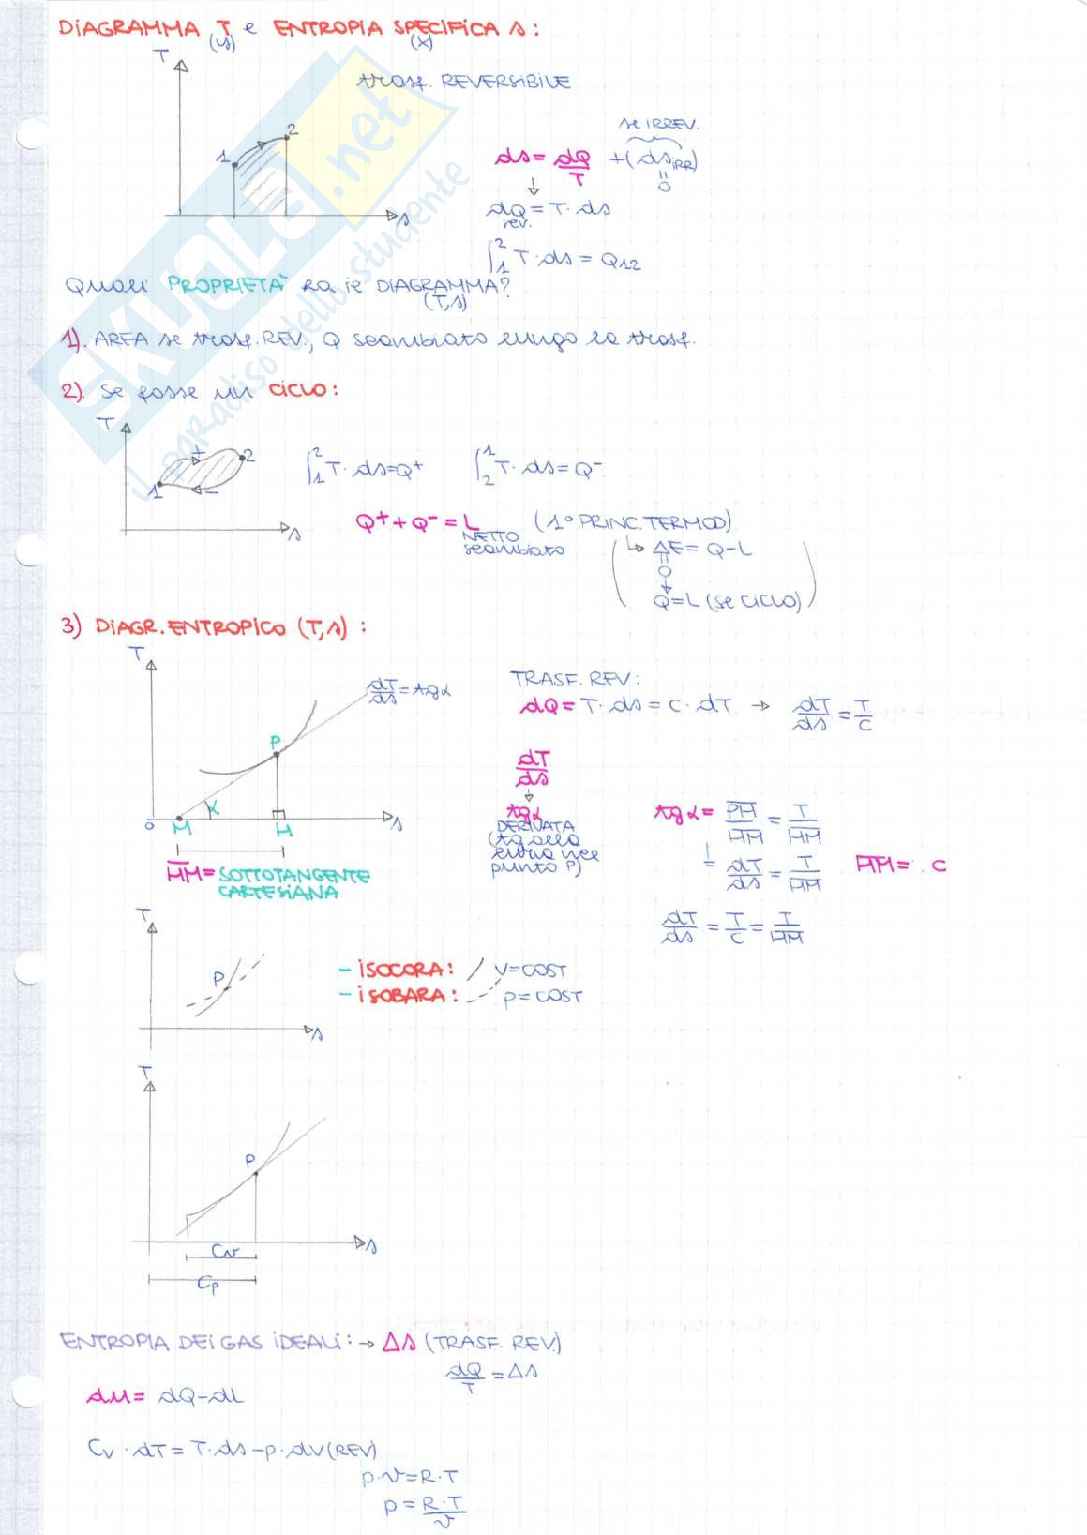 DIAGRAMMA T e ENTROPIA SPECIFICA s:
(y) (x)
T
trasf. REVERSIBILE
1 2
s
se IRREV.
ds = dQ/T + (ds IRR)
0
dQ = T · ds
rev.
∫₁² T · ds = Q₁₂
QUALI PROPRIETÀ ha il DIAGRAMMA?
(T,s)
1). AREA se trasf. REV., Q scambiato lungo la trasf.
2) Se fosse un CICLO:
T
+
1 2
−
s
∫₁² T · ds = Q⁺ ∫₂¹ T · ds = Q⁻
Q⁺ + Q⁻ = L (1° PRINC. TERMOD)
NETTO
scambiato
ΔE = Q − L
0
Q = L (se CICLO)
3) DIAGR. ENTROPICO (T,s):
T
dT/ds = tgα
P
α
0 M H s
M̅H̅ = SOTTOTANGENTE
CARTESIANA
TRASF. REV:
dQ = T · ds = c · dT → dT/ds = T/c
dT/ds
tgα
DERIVATA
(tg alla
curva nel
punto P)
tgα = PH/HM = T/HM
= dT/ds = T/HM HM = c
dT/ds = T/c = T/HM
T
P
s
- ISOCORA: / v = COST
- ISOBARA: p = COST
T
P
s
Cv
Cp
ENTROPIA DEI GAS IDEALI: → Δs (TRASF. REV.)
dQ/T = Δs
du = dQ − dL
Cv · dT = T · ds − p · dv (REV)
p · v = R · T
p = R · T/v
SKUOLA.net
il paradiso dello studente